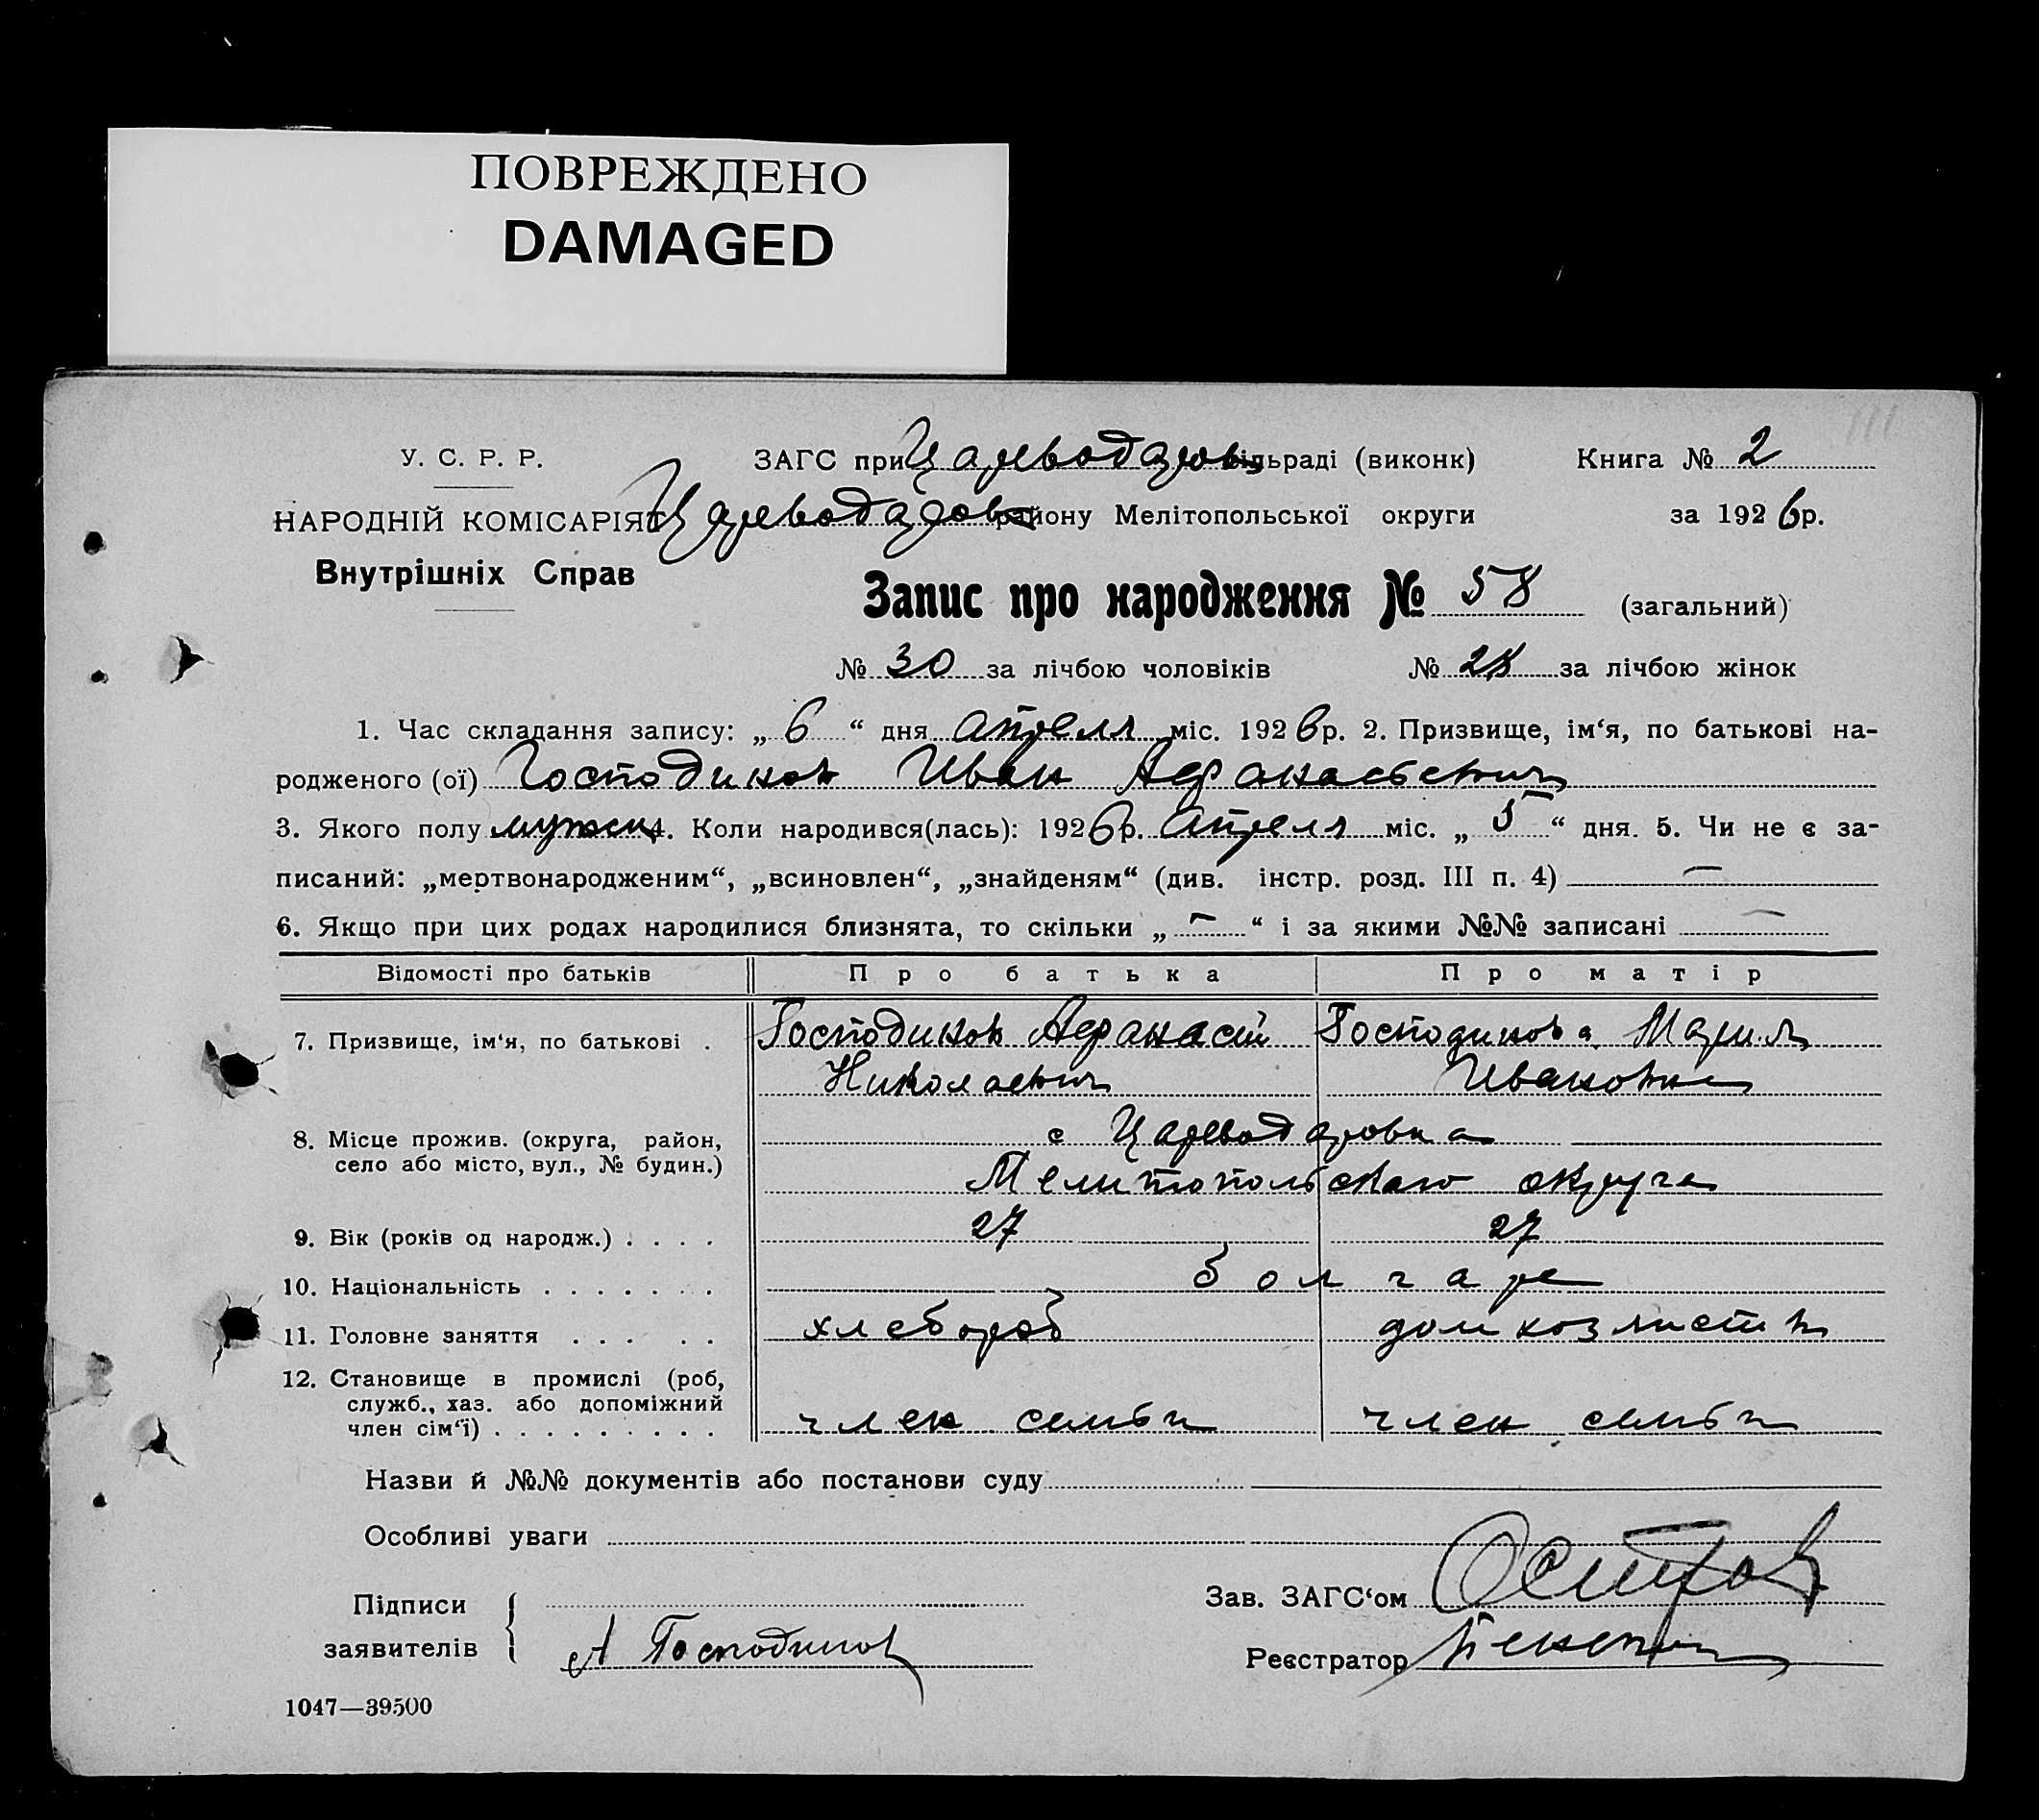 ПОВРЕЖДЕНО
DAMAGED
У. С. Р. Р.
ЗАГС при Цареводаров сільраді (виконк)
Книга № 2
НАРОДНІЙ КОМІСАРІЯТ
Цареводаров району Мелітопольської округи
за 1926 р.
Внутрішніх Справ
Запис про народження № 58 (загальний)
№ 30 за лічбою чоловіків № 28 за лічбою жінок
1. Час складання запису: „ 6 “ дня апреля міс. 1926 р. 2. Призвище, ім‘я, по батькові на-
родженого (ої) Господинов Иван Афанасьевич
3. Якого полу мужск 4. Коли народився(лась): 1926 р. Апреля міс. „ 5 “ дня. 5. Чи не є за-
писаний: „мертвонародженим“, „всиновлен“, „знайденям“ (див. інстр. розд. III п. 4) —
6. Якщо при цих родах народилися близнята, то скільки „ — “ і за якими №№ записані —
Відомості про батьків Про батька Про матір
7. Призвище, ім‘я, по батькові . Господинов Афанасий Господинова Мария
Николаевич Ивановна
8. Місце прожив. (округа, район, с Цареводаровка
село або місто, вул., № будин.) Мелитопольского округа
9. Вік (років од народж.) . . . . 27 27
10. Національність . . . . . . . болгаре
11. Головне заняття . . . . . хлебороб домхозяиств
12. Становище в промислі (роб,
служб., хаз. або допоміжний
член сім‘ї) . . . . . . . . . член семьи член семьи
Назви й №№ документів або постанови суду
Особливі уваги
Підписи
заявителів
А Господинов
Зав. ЗАГС‘ом
Реєстратор
1047—39500